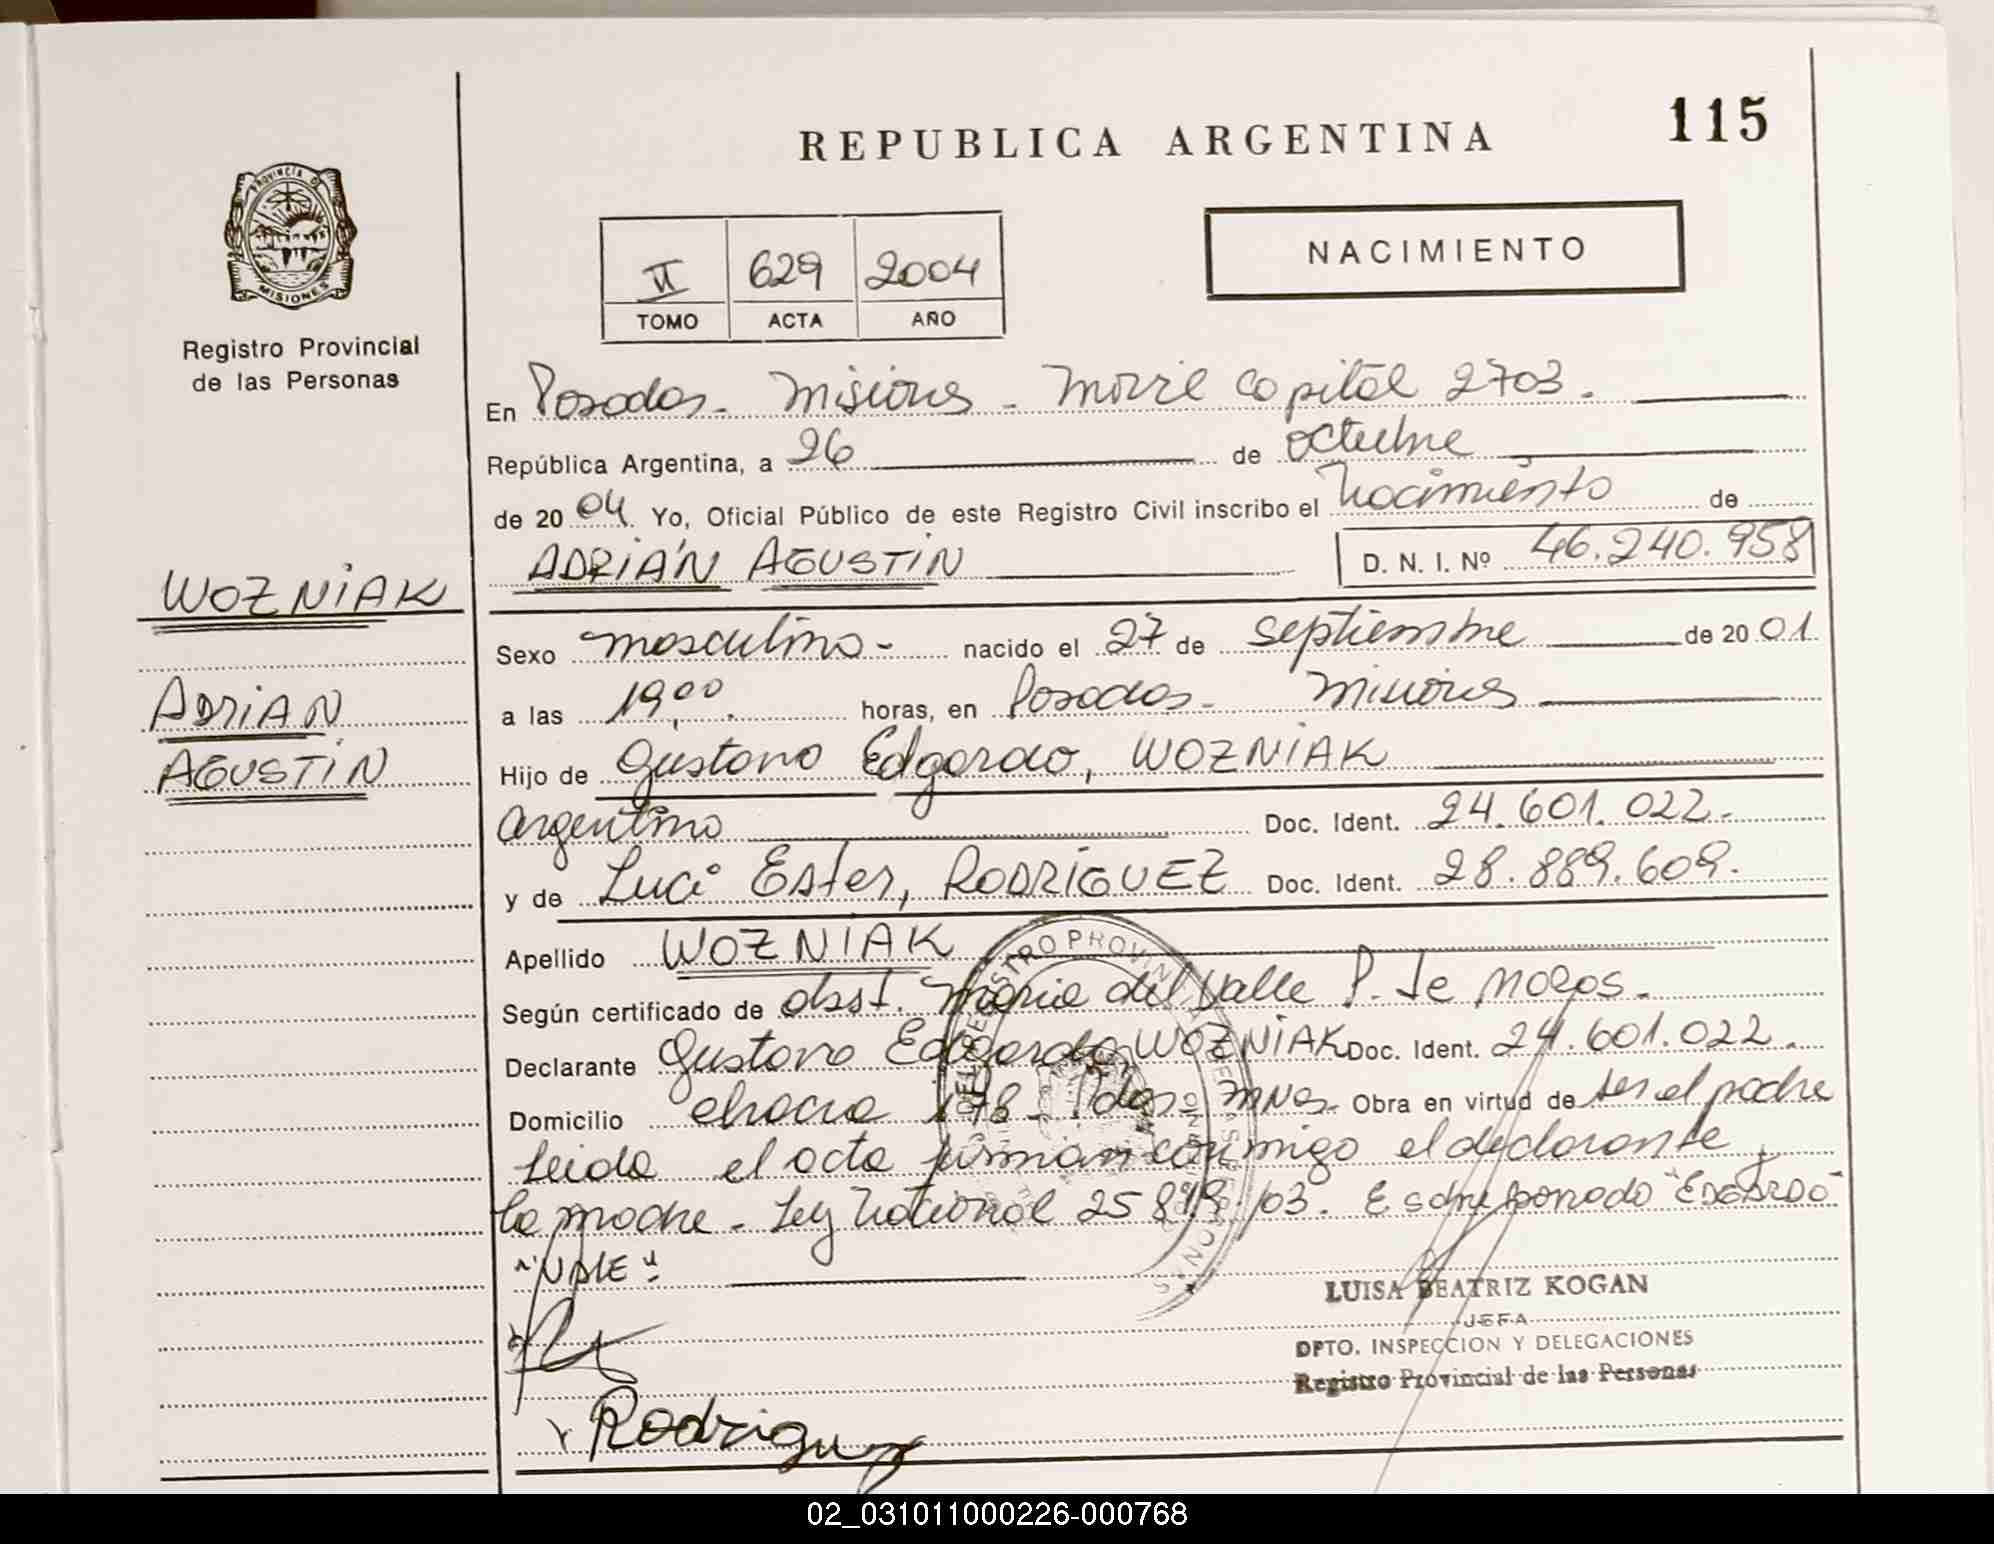 115
REPUBLICA ARGENTINA
PROVINCIA D
MISIONES
Registro Provincial
de las Personas
NACIMIENTO
VI 629 2004
TOMO ACTA AÑO
En Posadas - Misiones - Movil Capital 2703.
República Argentina, a 26 de octubre
de 2004. Yo, Oficial Público de este Registro Civil inscribo el Nacimiento de
ADRIÁN AGUSTÍN D. N. I. Nº 46.240.958
WOZNIAK
ADRIAN
AGUSTIN
Sexo masculino - nacido el 27 de septiembre de 2001.
a las 19,00. horas, en Posadas - Misiones
Hijo de Gustavo Edgardo, WOZNIAK
argentino Doc. Ident. 24.601.022.
y de Luci Ester, RODRIGUEZ Doc. Ident. 28.889.609.
Apellido WOZNIAK
Según certificado de obst. Maria del Valle P. de
Declarante Gustavo Edgardo WOZNIAK Doc. Ident. 24.601.022.
Domicilio chacra 178 - Pdas. Mnes. Obra en virtud de ser el padre
Leida el acta firman conmigo el declarante y
la madre - Ley Nacional 25.819/03. E sobreborrado "EDGARDO"
"VALE"
LUISA BEATRIZ KOGAN
JEFA
DPTO. INSPECCION Y DELEGACIONES
Registro Provincial de las Personas
Rodriguez
02_031011000226-000768